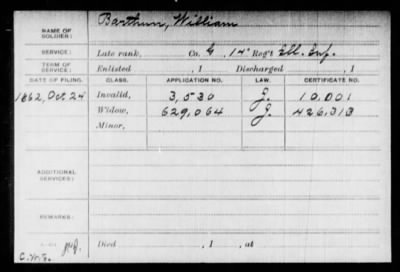 NAME OF SOLDIER: Barthum, William
SERVICE: Late rank, Co. G, 14" Reg't Ill. Inf.
TERM OF SERVICE: Enlisted , 1 Discharged , 1
DATE OF FILING. CLASS. APPLICATION NO. LAW. CERTIFICATE NO.
1862, Oct 24 Invalid, 3,530 J. 10,001
Widow, 629,064 J. 426,313
Minor,
ADDITIONAL SERVICES:
REMARKS:
Died , 1 , at